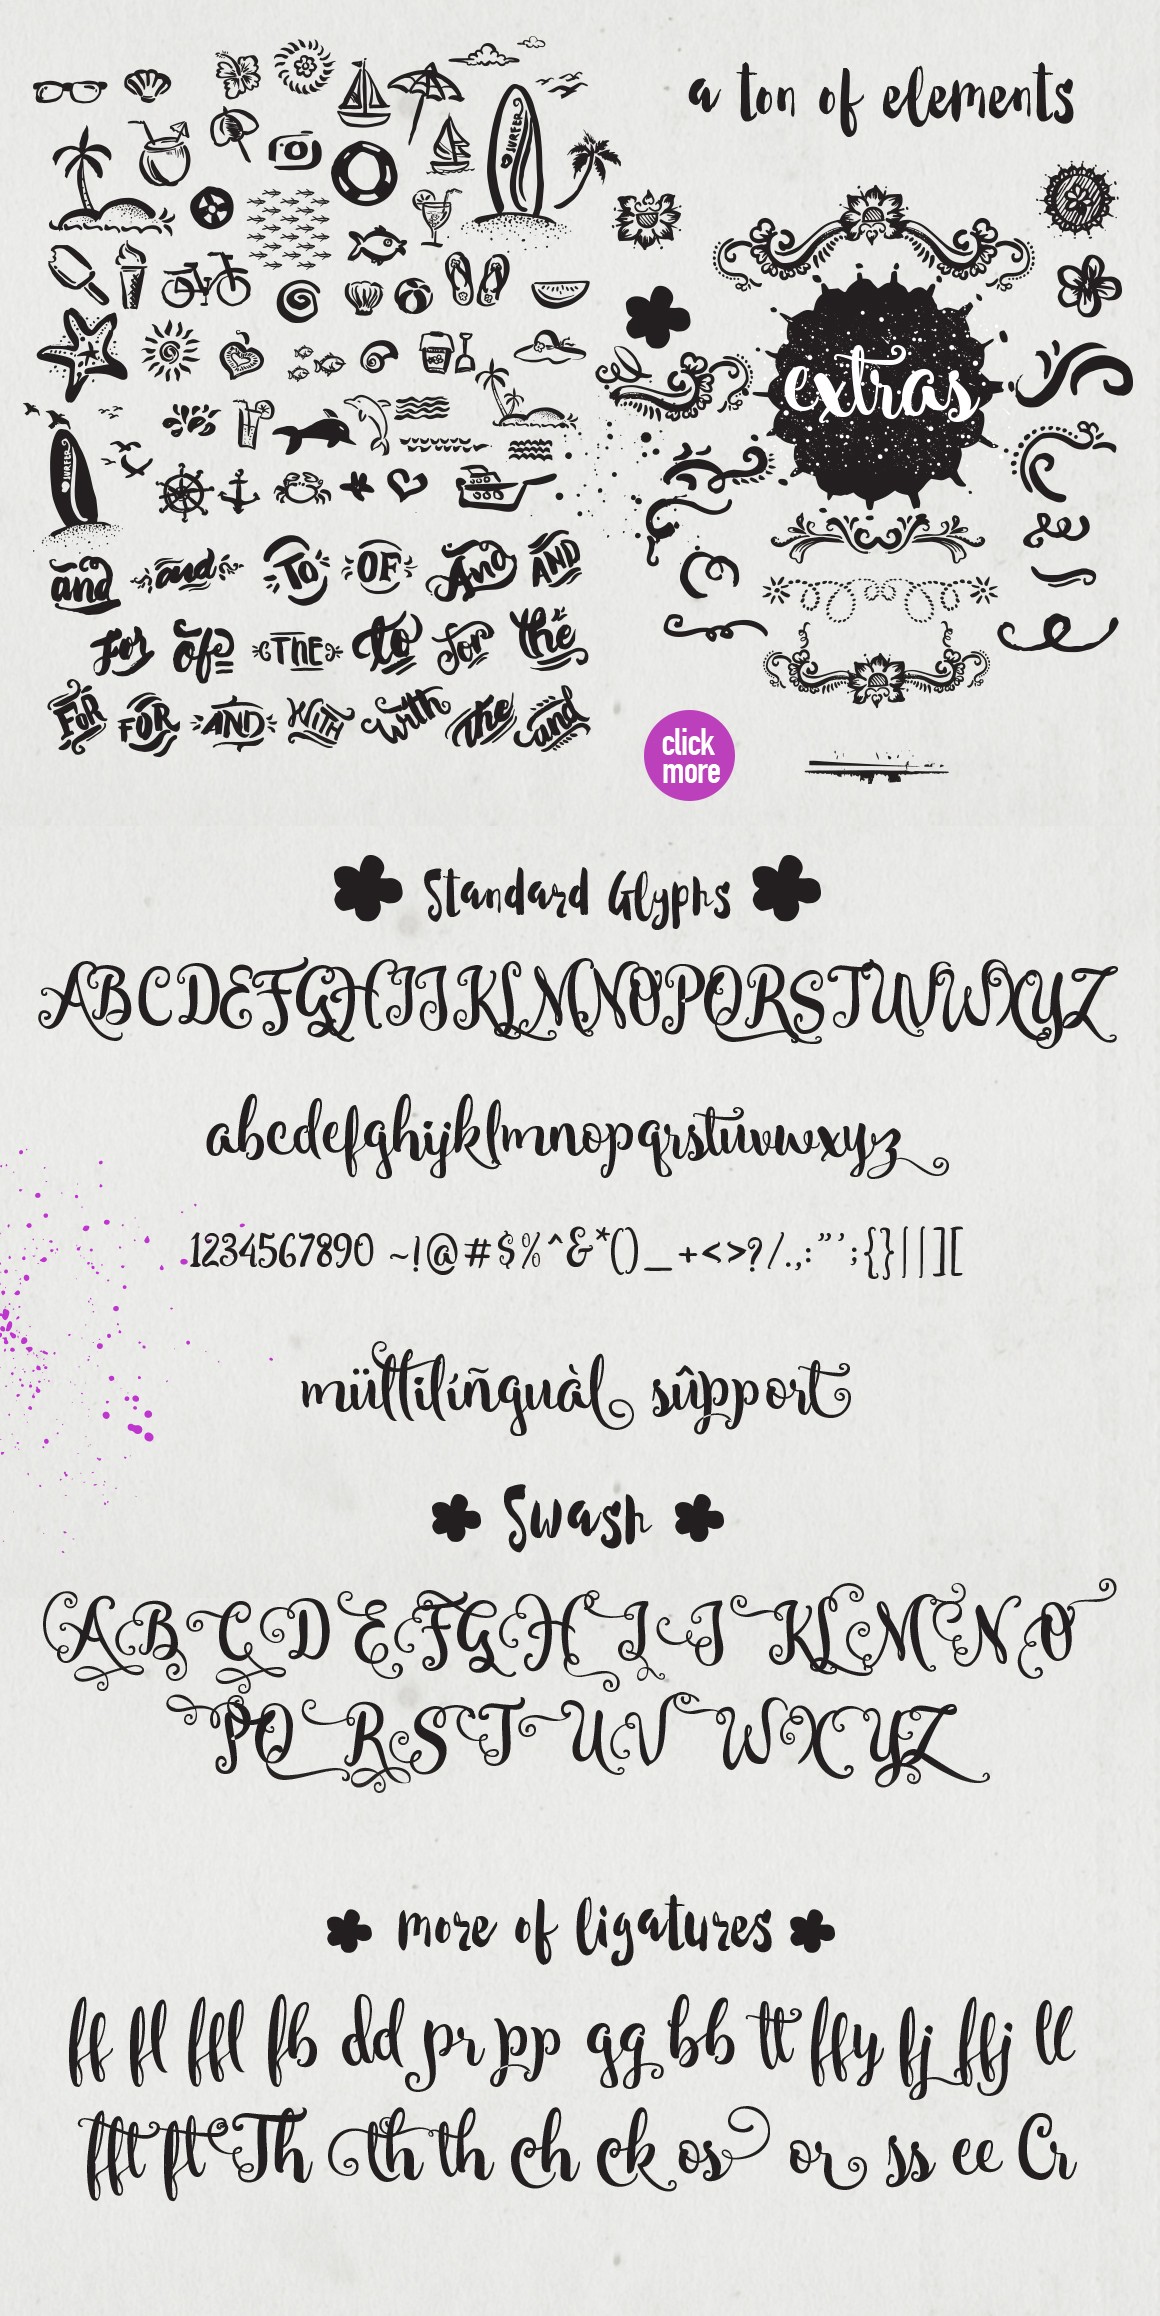 a ton of elements
SURFER
extras
SURFER
and and To OF And AND
For of THE to for the
FOR FOR AND WITH with the and
click
more
Standard Glyphs
ABCDEFGHIJKLMNOPQRSTUVWXYZ
abcdefghijklmnopqrstuvwxyz
1234567890 ~!@#$%^&*()_+<>?/.,:"';{}||][
mültilíñguàl sûpport
Swash
ABCDEFGHIJKLMNO
PQRSTUVWXYZ
more of ligatures
ff fl ffl fb dd pr pp gg bb tt ffy fj ffj ll
fft ft Th th th ch ck os or ss ee Cr